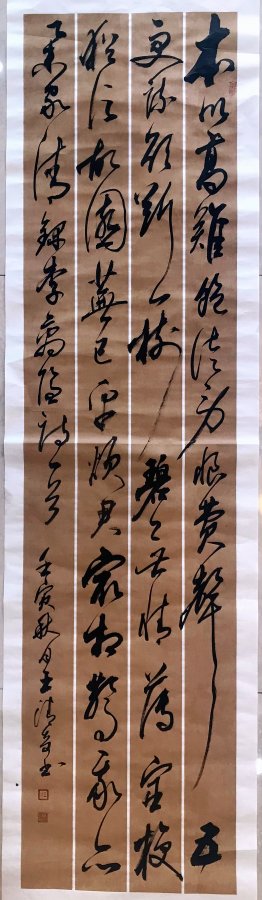 本以高难饱徒劳恨费声五
更疏欲断一树碧无情薄宦梗
犹泛故园芜已平烦君最相警我亦
举家清 录李商隐诗一首
壬寅秋月王清书